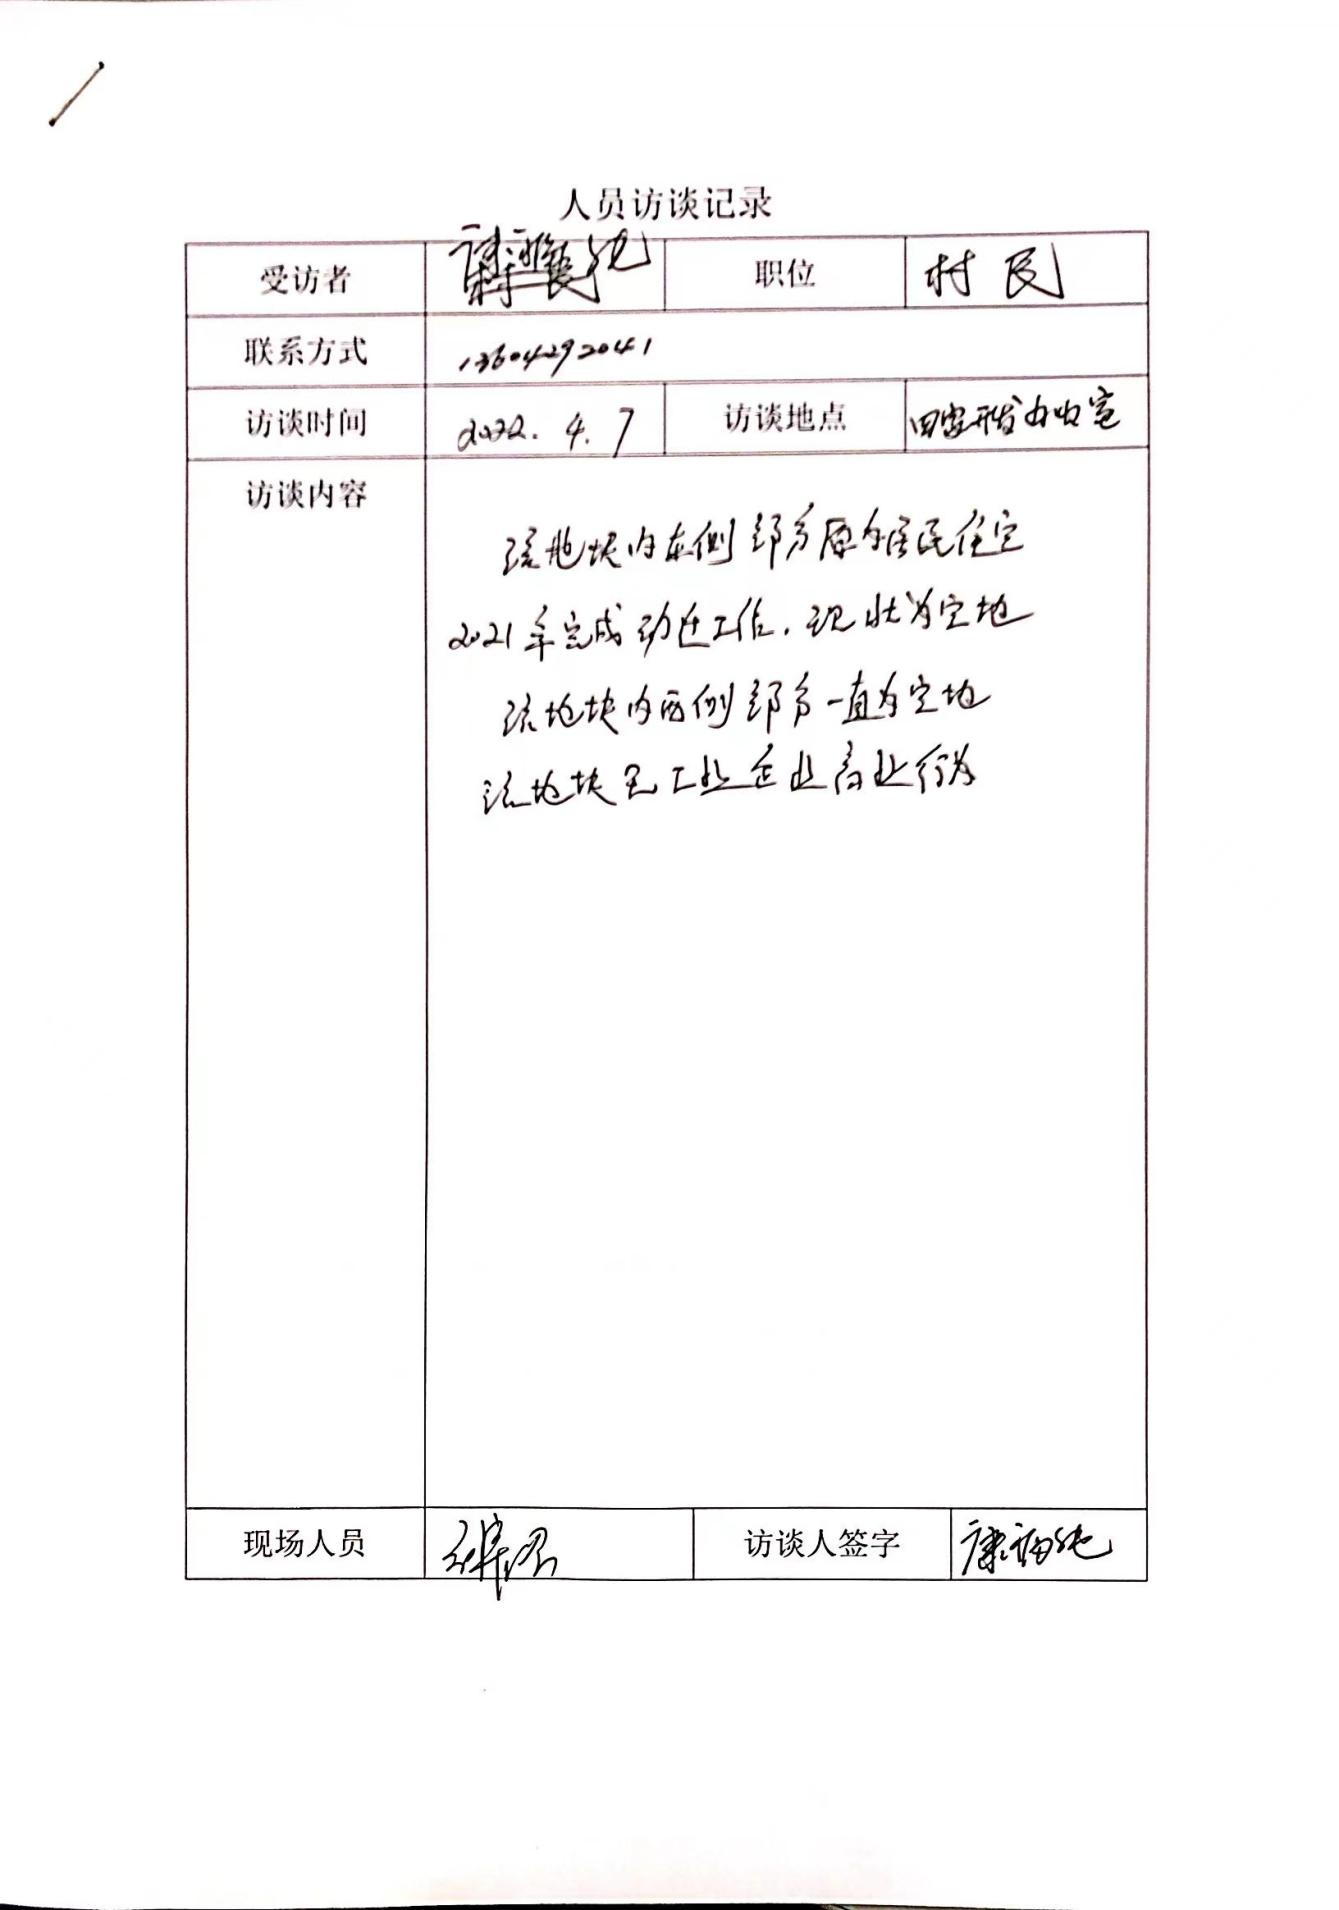 人员访谈记录
受访者 职位 村民
联系方式 13604292041
访谈时间 2022.4.7 访谈地点 田家 办公室
访谈内容
该地块内东侧部分原为居民住宅
2021年完成动迁工作.现状为空地
该地块内西侧部分一直为空地
该地块无工业企业商业行为
现场人员 访谈人签字 康福纯